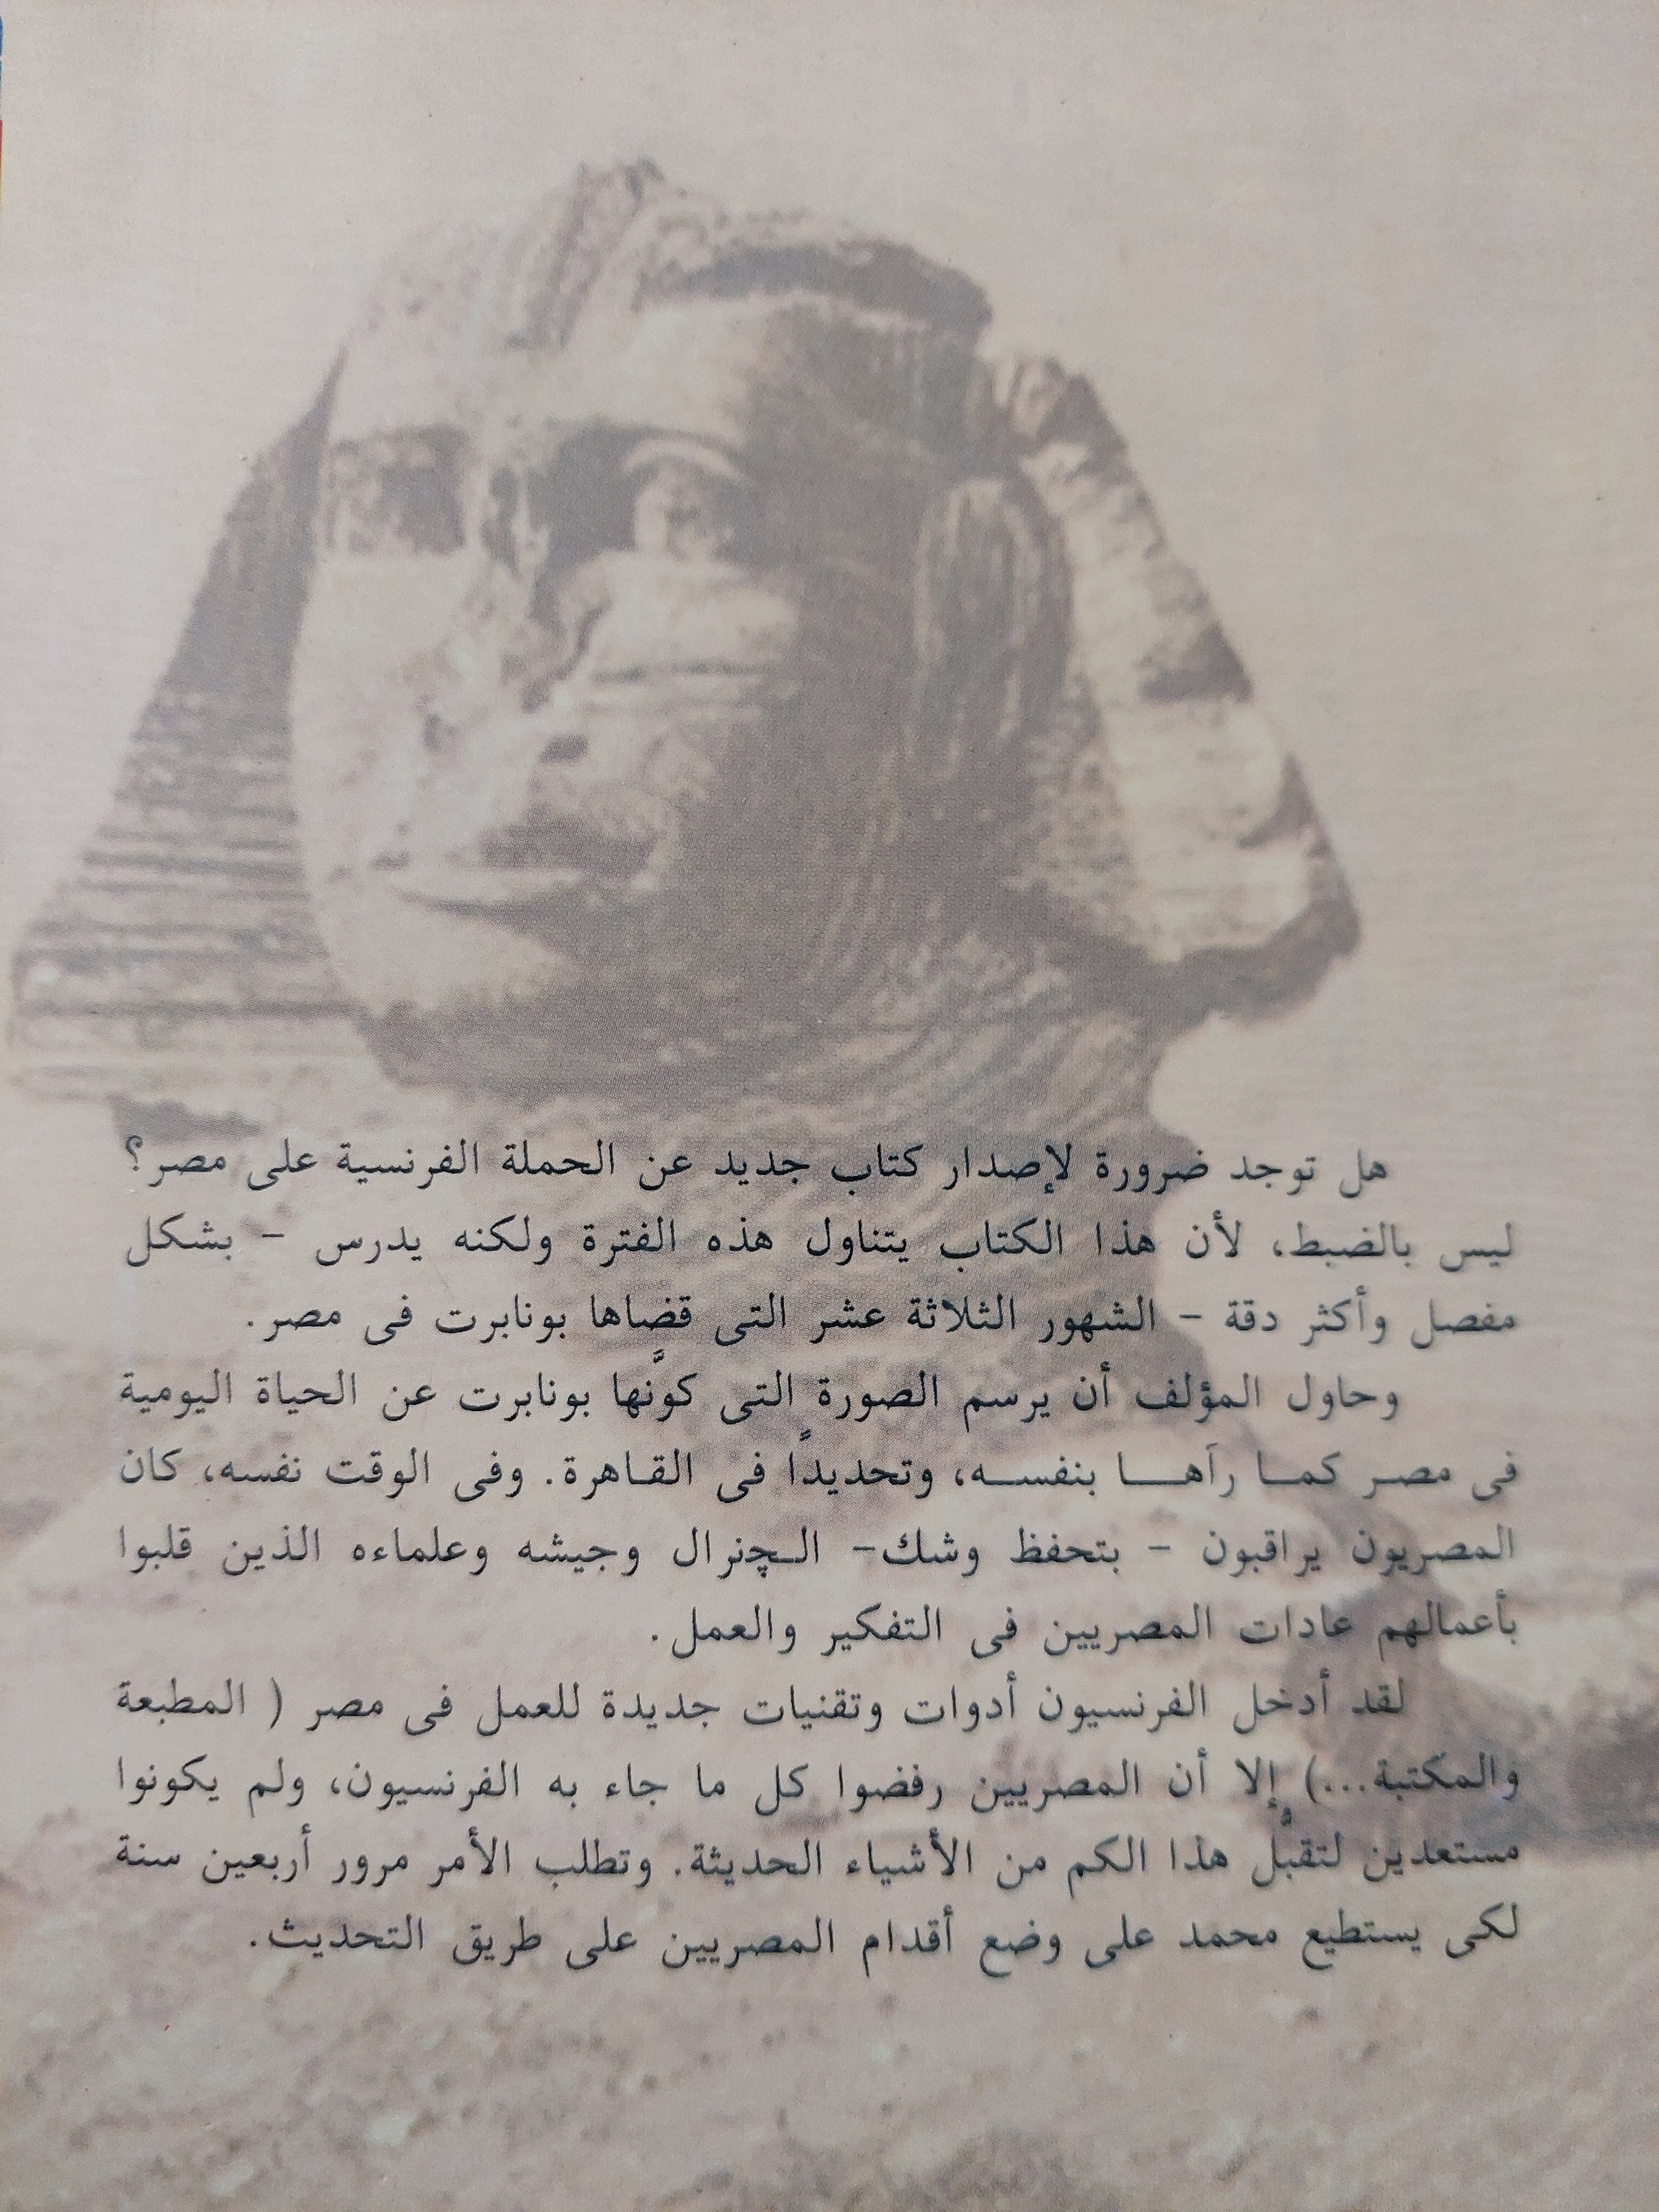 هل توجد ضرورة لإصدار كتاب جديد عن الحملة الفرنسية على مصر؟
ليس بالضبط، لأن هذا الكتاب يتناول هذه الفترة ولكنه يدرس – بشكل
مفصل وأكثر دقة – الشهور الثلاثة عشر التى قضاها بونابرت فى مصر.
وحاول المؤلف أن يرسم الصورة التى كوَّنها بونابرت عن الحياة اليومية
فى مصر كما رآها بنفسه، وتحديدًا فى القاهرة. وفى الوقت نفسه، كان
المصريون يراقبون – بتحفظ وشك– الچنرال وجيشه وعلماءه الذين قلبوا
بأعمالهم عادات المصريين فى التفكير والعمل.
لقد أدخل الفرنسيون أدوات وتقنيات جديدة للعمل فى مصر ( المطبعة
والمكتبة...) إلا أن المصريين رفضوا كل ما جاء به الفرنسيون، ولم يكونوا
مستعدين لتقبُّل هذا الكم من الأشياء الحديثة. وتطلب الأمر مرور أربعين سنة
لكى يستطيع محمد على وضع أقدام المصريين على طريق التحديث.